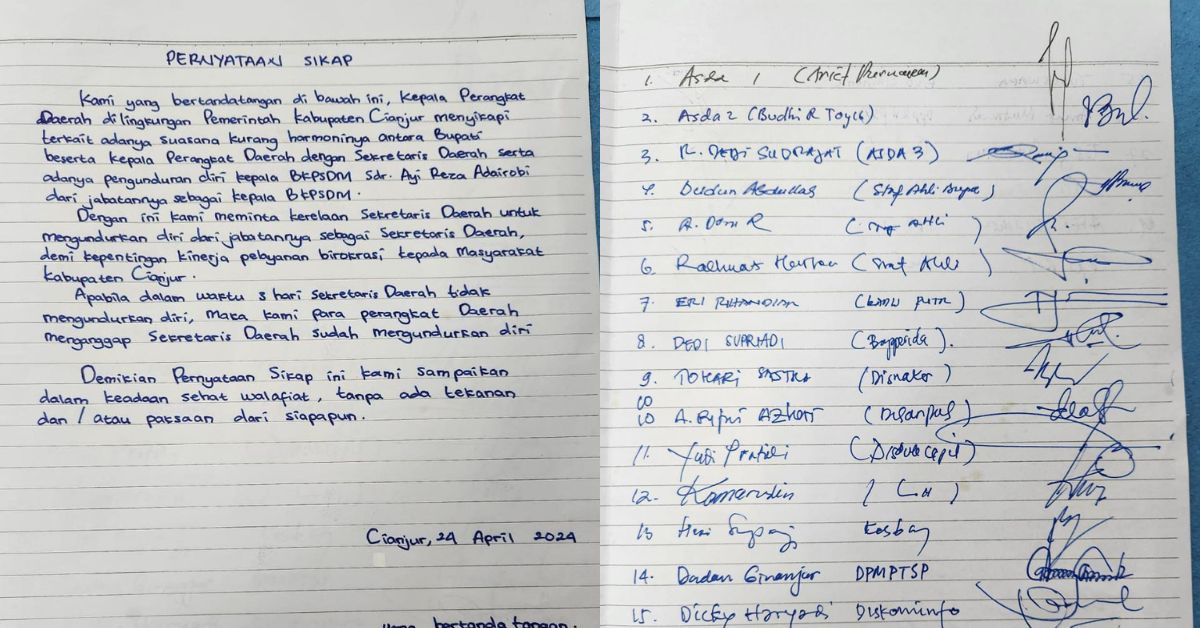 PERNYATAAN SIKAP
Kami yang bertandatangan di bawah ini, Kepala Perangkat
Daerah dilingkungan Pemerintah Kabupaten Cianjur menyikapi
terkait adanya suasana kurang harmoninya antara Bupati
beserta kepala Perangkat Daerah dengan Sekretaris Daerah serta
adanya pengunduran diri kepala BKPSDM Sdr. Ayi Reza Adairobi
dari jabatannya sebagai kepala BKPSDM.
Dengan ini kami meminta kerelaan Sekretaris Daerah untuk
mengundurkan diri dari jabatannya sebagai Sekretaris Daerah,
demi kepentingan kinerja pelayanan birokrasi kepada Masyarakat
Kabupaten Cianjur.
Apabila dalam waktu 3 hari Sekretaris Daerah tidak
mengundurkan diri, maka kami para perangkat Daerah
menganggap Sekretaris Daerah sudah mengundurkan diri
Demikian Pernyataan Sikap ini kami sampaikan
dalam keadaan sehat walafiat, tanpa ada tekanan
dan / atau paksaan dari siapapun.
Cianjur, 24 April 2024
yang bertanda tangan.
1. Asda 1
2. Asda 2 (Budhi R Toyib)
3. R. DEDI SUDRAJAT (ASDA 3)
4. Abdullah (Staf Ahli Bupa)
5. A. Dani R (Staf Ahli)
6. Rachmat (Staf Ahli)
7. ERI RIHANDIAR
8. DEDI SUPRIADI (Bapperida).
9. TOHARI SASTRA (Disnaker)
10 A. Rifai AZhari
11. Yudi Pratidi (Disdukcapil)
12. Komarudin (LH)
13 Heri Kesbang
14. Dadan Ginanjar DPMPTSP
15. Dicky Haryadi Diskominfo